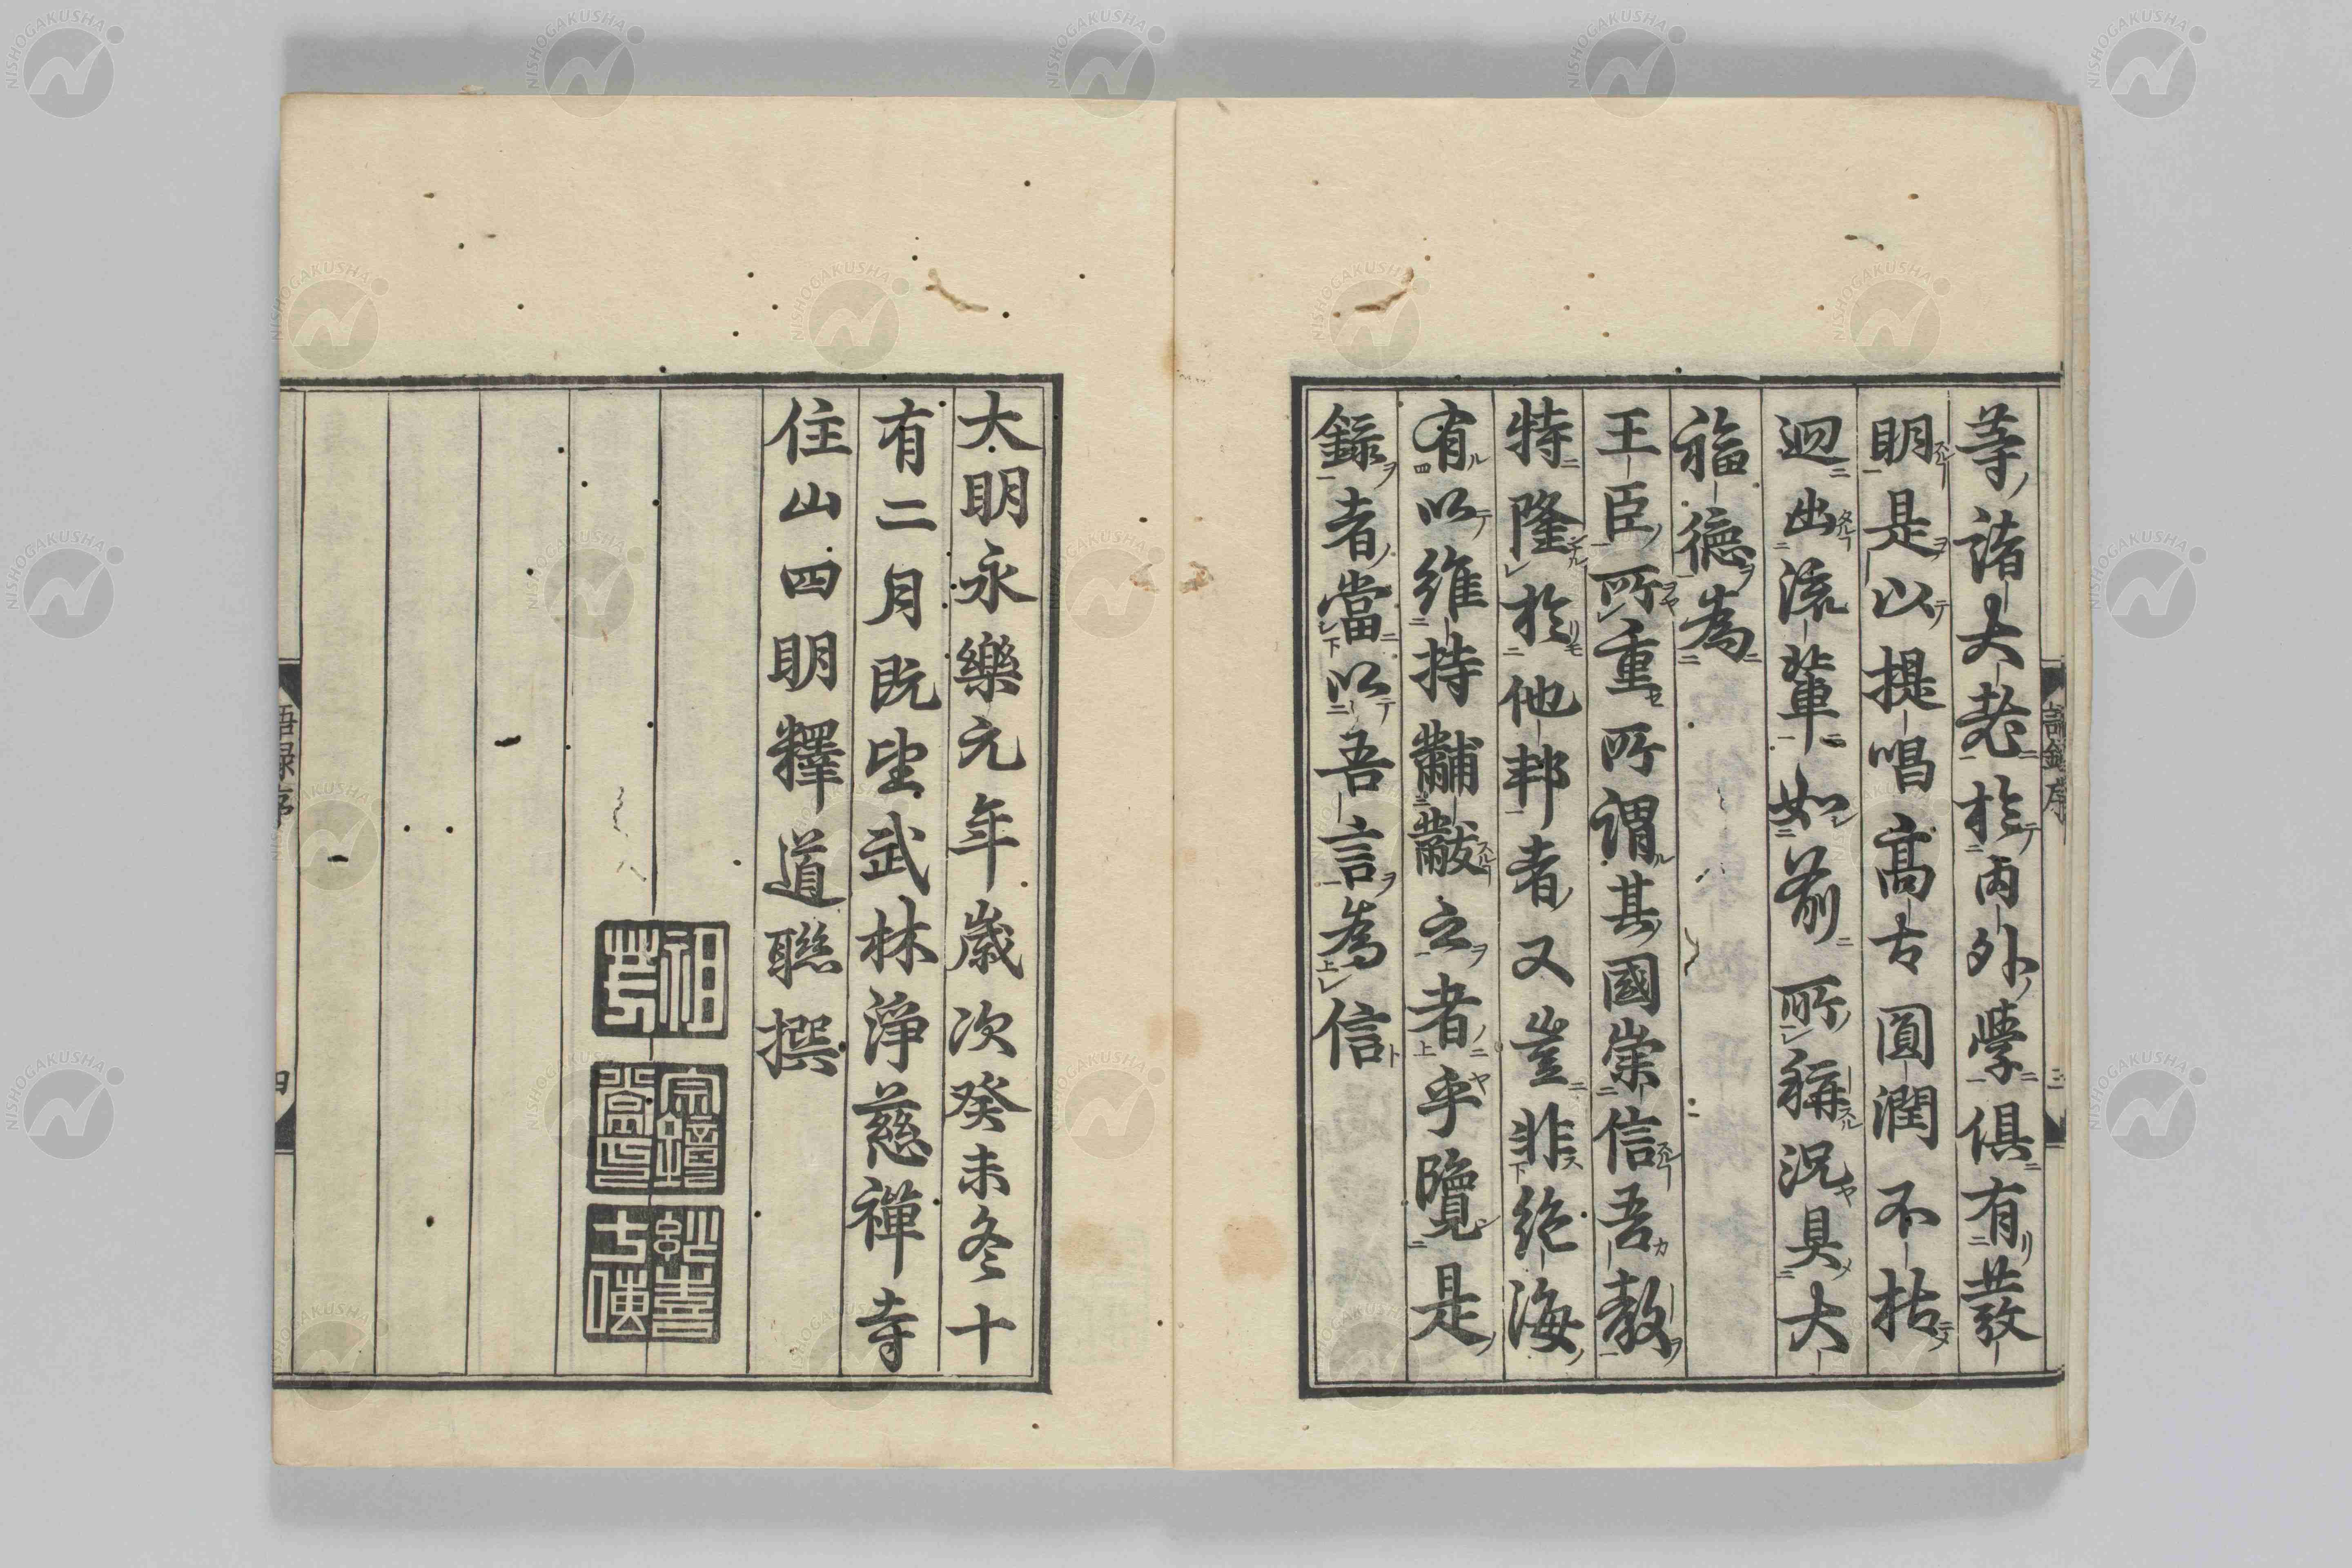 等諸大老於內外學俱有發
明是以提唱高古圓潤不枯
迥出流輩如前所稱況具大
福德為
王臣所重所謂其國崇信吾教
特隆於他邦者又豈非絶海
有以維持黼黻之者乎覽是
錄者當以吾言為信
語錄序
三
大明永樂元年歲次癸未冬十
有二月既望武林淨慈禪寺
住山四明釋道聯撰
祖芳
語録序
四
NISHOGAKUSHA